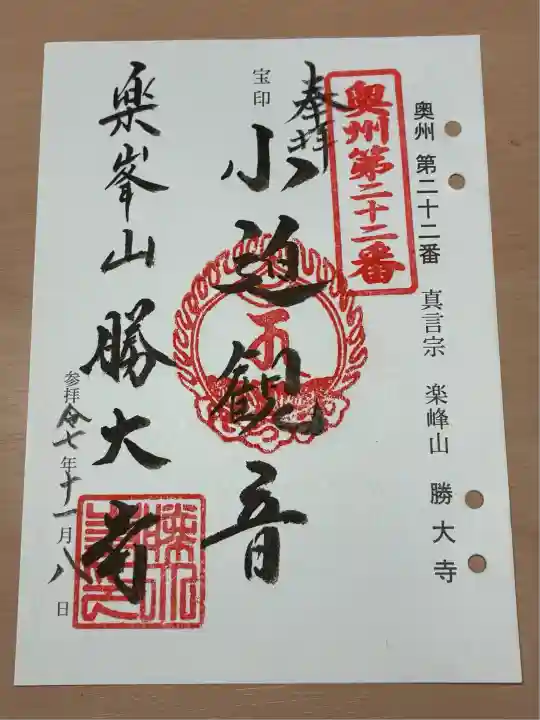 奥州 第二十二番 真言宗 楽峰山 勝大寺
奥州第二十二番
奉拝
宝印
小迫観音
楽峯山 勝大寺
参拝 令七年十一月八日